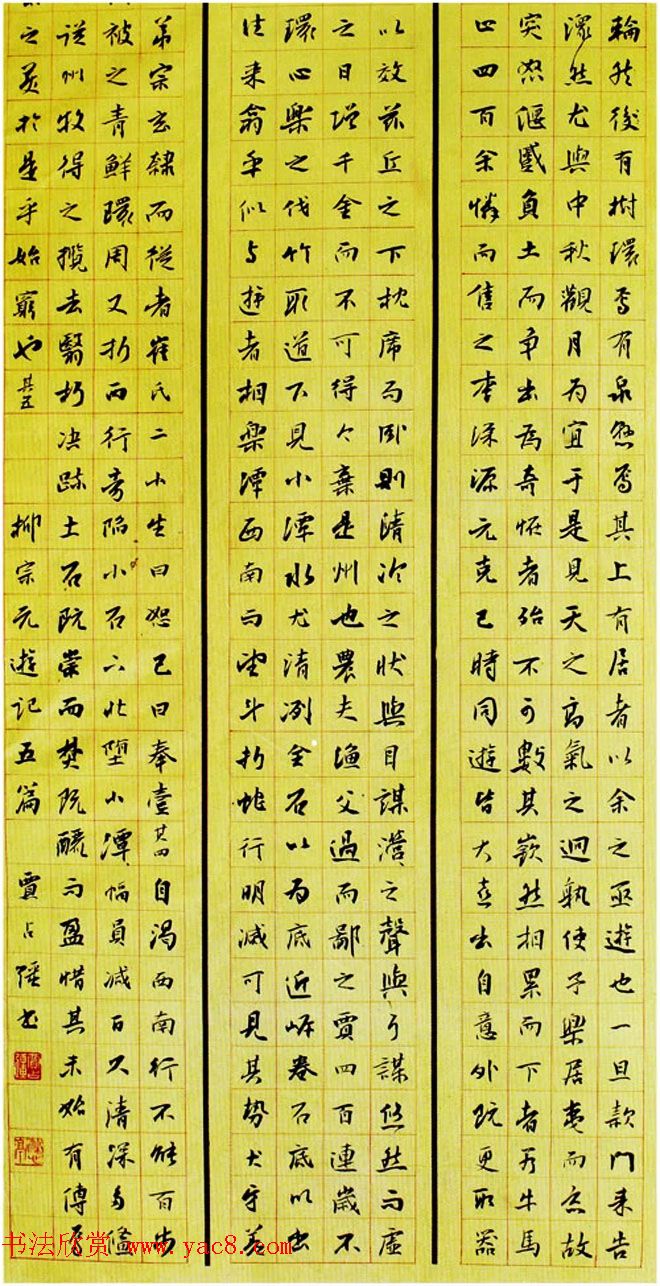 輪然後有樹環焉有泉懸焉其上有居者以余之亟遊也一旦款門來告
潀然尤與中秋觀月為宜于是見天之高氣之迥孰使予樂居夷而忘故
突怒偃蹇負土而爭出為奇怪者殆不可數其嶔然相累而下者若牛馬
止四百余憐而售之李深源元克己時同遊皆大喜出自意外既更取器
以效茲丘之下枕席而臥則清泠之狀與目謀瀯之聲與耳謀悠然而虛
之日增千金而不可得今棄是州也農夫漁父過而鄙之賈四百連歲不
環心樂之伐竹取道下見小潭水尤清冽全石以為底近岸卷石底以出
往來翕乎似与遊者相樂潭西南而望斗折蛇行明滅可見其勢犬牙差
弟宗玄隸而從者崔氏二小生曰恕己曰奉壹其四自渴西南行不能百步
被之青鮮環周又折西行旁陷小石下北墮小潭幅員減百尺清深多鯈
從州牧得之攬去翳朽決疏土石既崇而焚既釃而盈惜其未始有傳焉
之美於是乎始窮也其五 柳宗元遊記五篇 賈占強书
书法欣赏 www.yac8.com